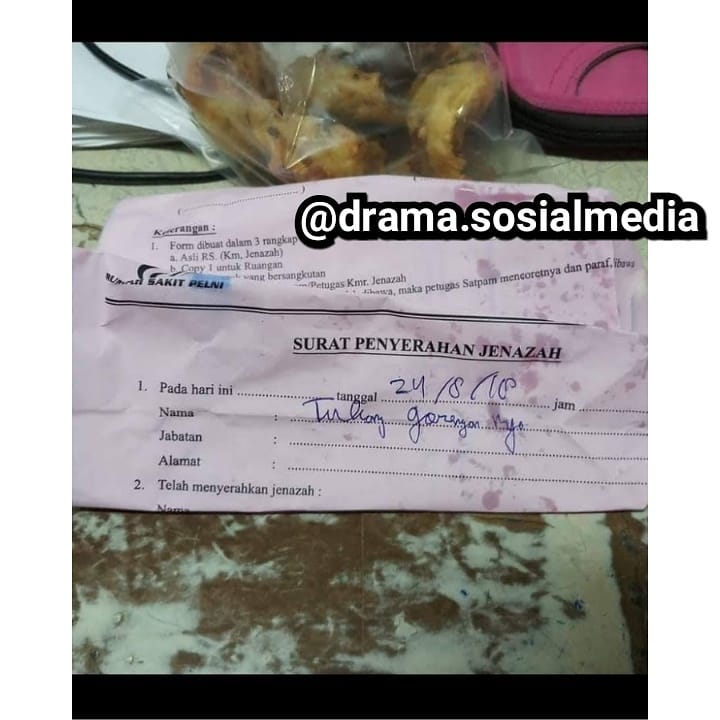 @drama.sosialmedia
Keterangan :
1. Form dibuat dalam 3 rangkap
a. Asli RS. (Km, Jenazah)
b. Copy 1 untuk Ruangan
yang bersangkutan
/Petugas Kmr. Jenazah
maka petugas Satpam mencoretnya dan paraf,
SAKIT PELNI
SURAT PENYERAHAN JENAZAH
1. Pada hari ini tanggal 24/8/18 jam
Nama : Tukang gorengan nya
Jabatan :
Alamat :
2. Telah menyerahkan jenazah :
Nama